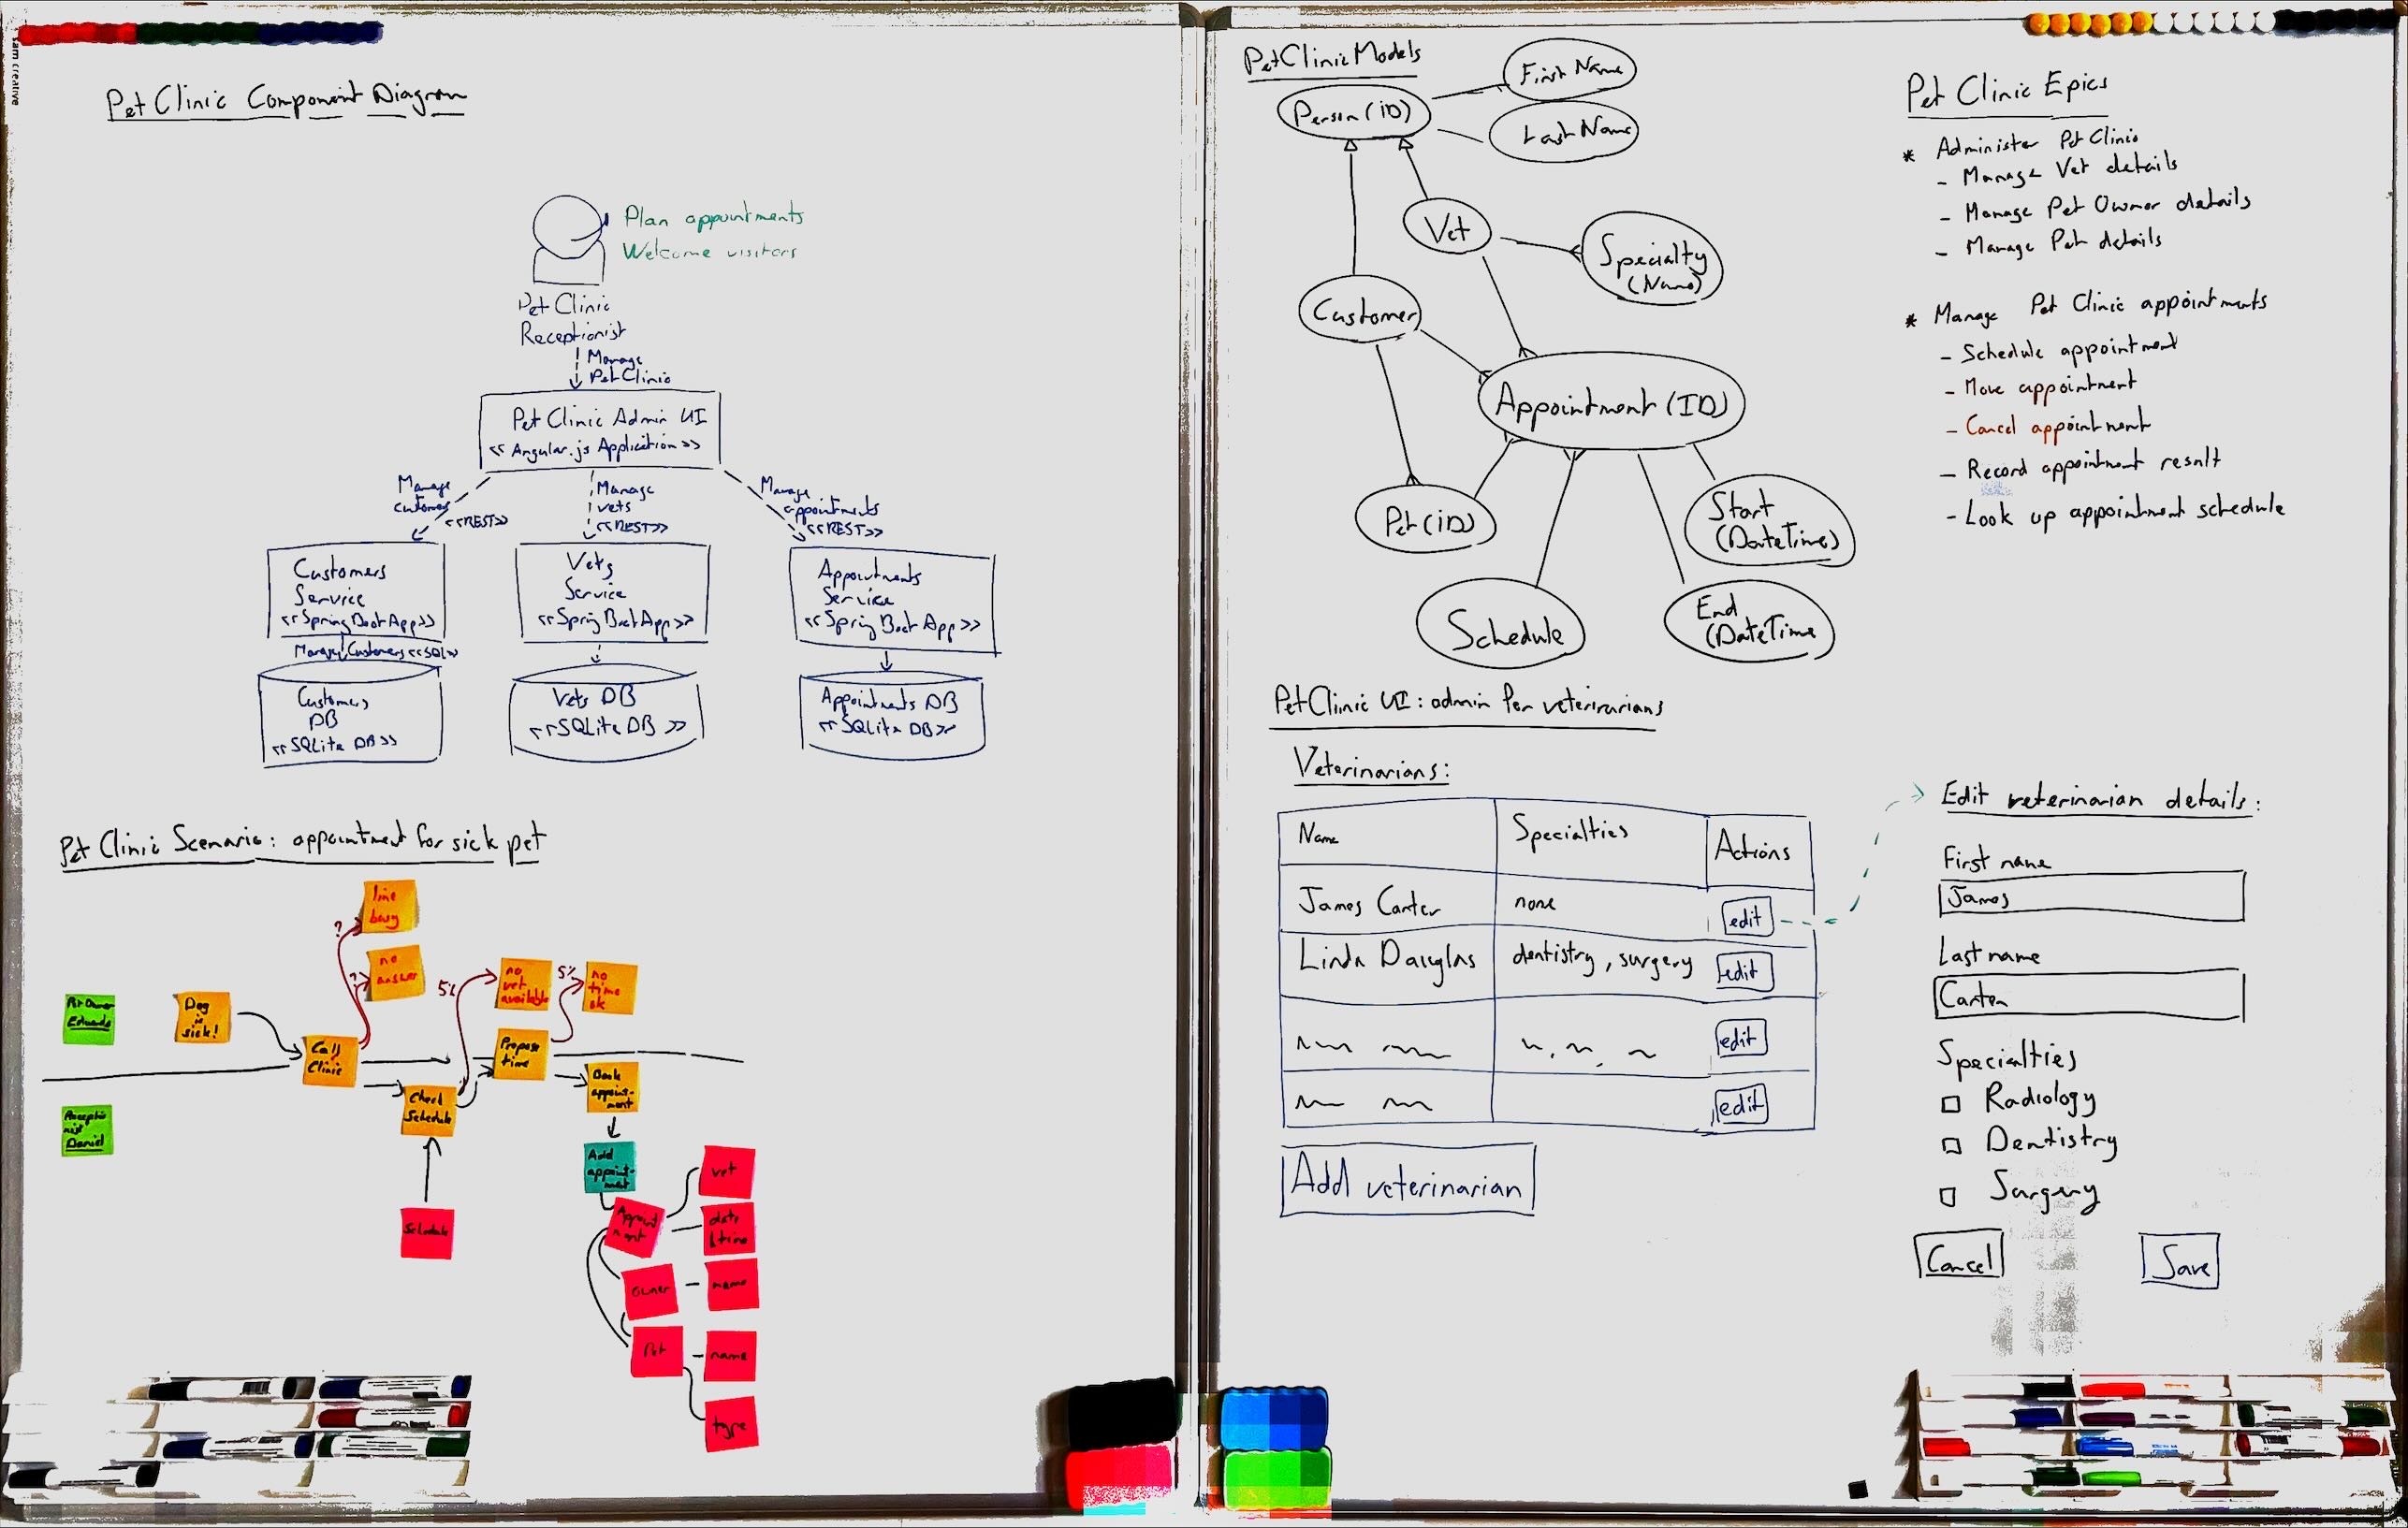 I am creative
Pet Clinic Component Diagram
Plan appointments
Welcome visitors
Pet Clinic
Receptionist
Manage
Pet Clinic
Pet Clinic Admin UI
<< Angular.js Application >>
Manage
customers
<<REST>>
Manage
vets
<<REST>>
Manage
appointments
<<REST>>
Customers
Service
<<Spring Boot App>>
Manage Customers <<SQL>>
Customers
DB
<<SQLite DB>>
Vets
Service
<<Spring Boot App>>
Vets DB
<<SQLite DB>>
Appointments
Service
<<Spring Boot App>>
Appointments DB
<<SQLite DB>>
Pet Clinic Scenario: appointment for sick pet
line
busy
?
no
answer
?
5%
no
vet
available
5%
no
time
ok
Pet Owner
Edwards
Dog
is
sick!
Call
Clinic
Propose
time
Check
Schedule
Book
appoint-
ment
Receptio
nist
Daniel
Schedule
Add
appoint-
ment
Appoint
ment
vet
date
/time
owner
name
Pet
name
type
Pet Clinic Models
Person (iD)
First Name
Last Name
Vet
Specialty
(Name)
Customer
Appointment (ID)
Pet (iD)
Start
(DateTime)
Schedule
End
(DateTime)
Pet Clinic Epics
* Administer Pet Clinic
- Manage Vet details
- Manage Pet Owner details
- Manage Pet details
* Manage Pet Clinic appointments
- Schedule appointment
- Move appointment
- Cancel appointment
- Record appointment result
- Look up appointment schedule
Pet Clinic UI: admin for veterinarians
Veterinarians:
Name Specialties Actions
James Carter none edit
Linda Douglas dentistry, surgery edit
edit
edit
Add veterinarian
Edit veterinarian details:
First name
James
Last name
Carter
Specialties
Radiology
Dentistry
Surgery
Cancel Save